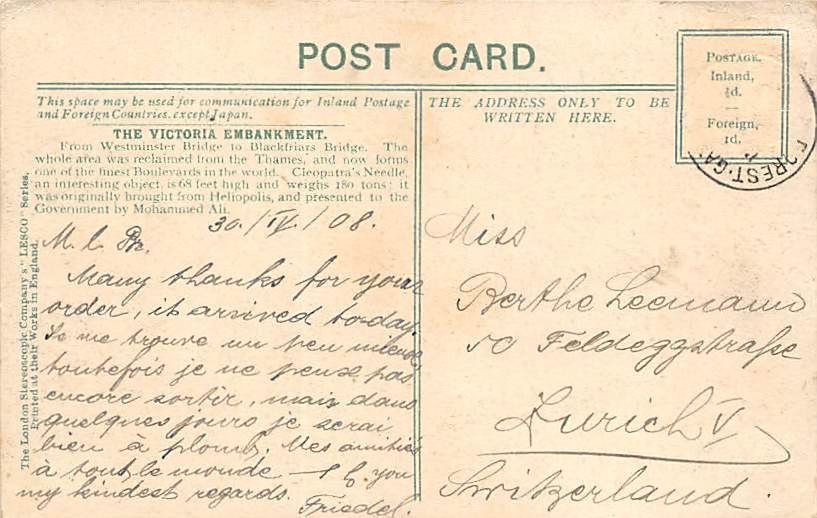 POST CARD.
This space may be used for communication for Inland Postage
and Foreign Countries, except Japan.
THE VICTORIA EMBANKMENT.
From Westminster Bridge to Blackfriars Bridge. The
whole area was reclaimed from the Thames, and now forms
one of the finest Boulevards in the world. Cleopatra's Needle,
an interesting object, is 68 feet high and weighs 180 tons; it
was originally brought from Heliopolis, and presented to the
Government by Mohammed Ali.
30./IV./08.
M. l. Br.
Many thanks for your
order, it arrived to-day.
Je me trouve un peu mieux,
toutefois je ne peux pas
encore sortir, mais dans
quelques jours je serai
bien à plomb. Mes amitiés
à tout le monde — you
my kindest regards.
Friedel.
The London Stereoscopic Company's "LESCO" Series.
Printed at their Works in England.
THE ADDRESS ONLY TO BE
WRITTEN HERE.
POSTAGE.
Inland,
½d.
Foreign,
1d.
FOREST·GA
Miss
Berthe Leemann
50 Feldeggstraße
Zurich V
Switzerland.